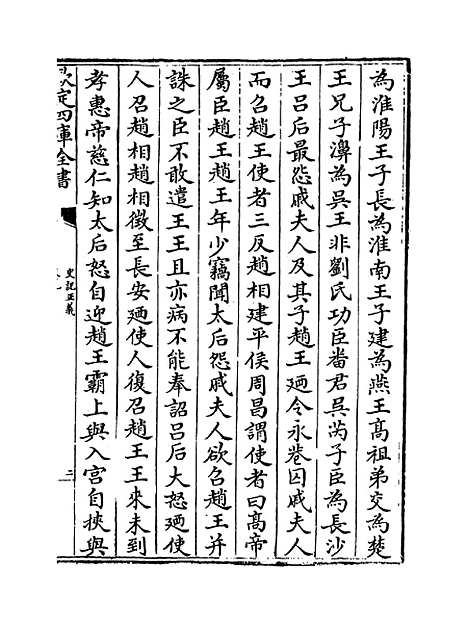 為淮陽王子長為淮南王子建為燕王髙祖弟交為楚
王兄子濞為吳王非劉氏功臣番君吳芮子臣為長沙
王吕后最怨戚夫人及其子趙王廼令永巷囚戚夫人
而召趙王使者三反趙相建平侯周昌謂使者曰髙帝
屬臣趙王趙王年少竊聞太后怨戚夫人欲召趙王并
誅之臣不敢遣王王且亦病不能奉詔吕后大怒廼使
人召趙相趙相徴至長安廼使人復召趙王王來未到
孝惠帝慈仁知太后怒自迎趙王霸上與入宫自挾與
欽定四庫全書
史記正義
二